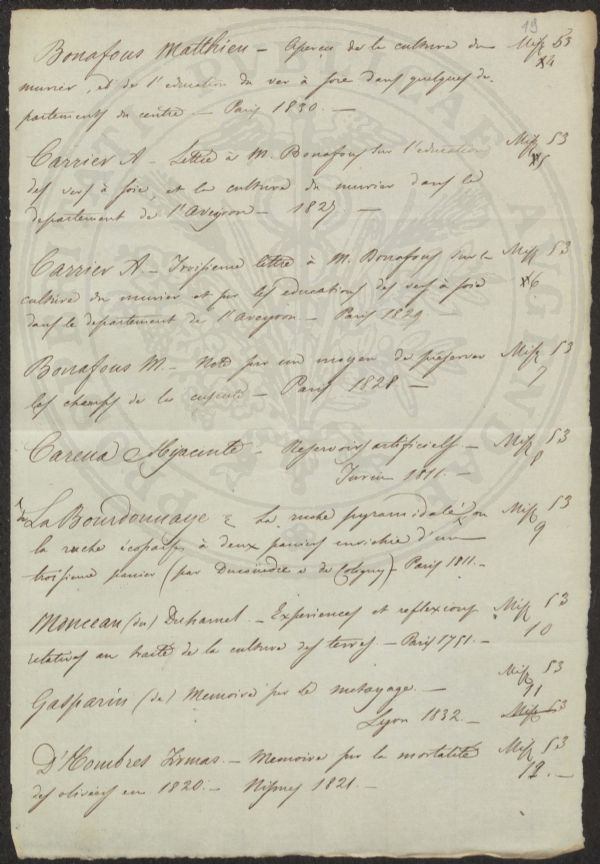 19
Bonafous Matthieu - Aperçu de la culture du Misz 53
murier, et de l'education du ver à soie dans quelques de- 4
partements du centre - Paris 1830. -
Carrier A - Lettre à M. Bonafous sur l'education Misz 53
des vers à soie, et la culture du murier dans le 5
departement de l'Aveyron - 1827 -
Carrier A - Troisieme lettre à M. Bonafous sur la Misz 53
culture du murier et sur les educations des vers à soie 6
dans le departement de l'Aveyron - Paris 1829
Bonafous M. - Note sur un moyen de preserver Misz 53
les champs de la cuscute - Paris 1828 - 7
Carena Hyacinte - Reservoirs artificiels - Misz 53
Turin 1811. - 8
La Bourdonnaye - La ruche pyramidale, ou Misz 53
la ruche écossaise à deux paniers enrichie d'un 9
troisieme panier (par Ducouedic de Coligny) - Paris 1811. -
Monceau (du) Duhamel. - Experiences et reflexions Misz 53
relatives au traité de la culture des terres - Paris 1751. - 10
Misz 53
Gasparin (de) Memoire sur le metayage. - 11
Lyon 1832. - Misz 53
D'Hombres Firmas. - Memoire sur la mortalité Misz 53
des oliviers en 1820. - Nismes 1821. - 12. -